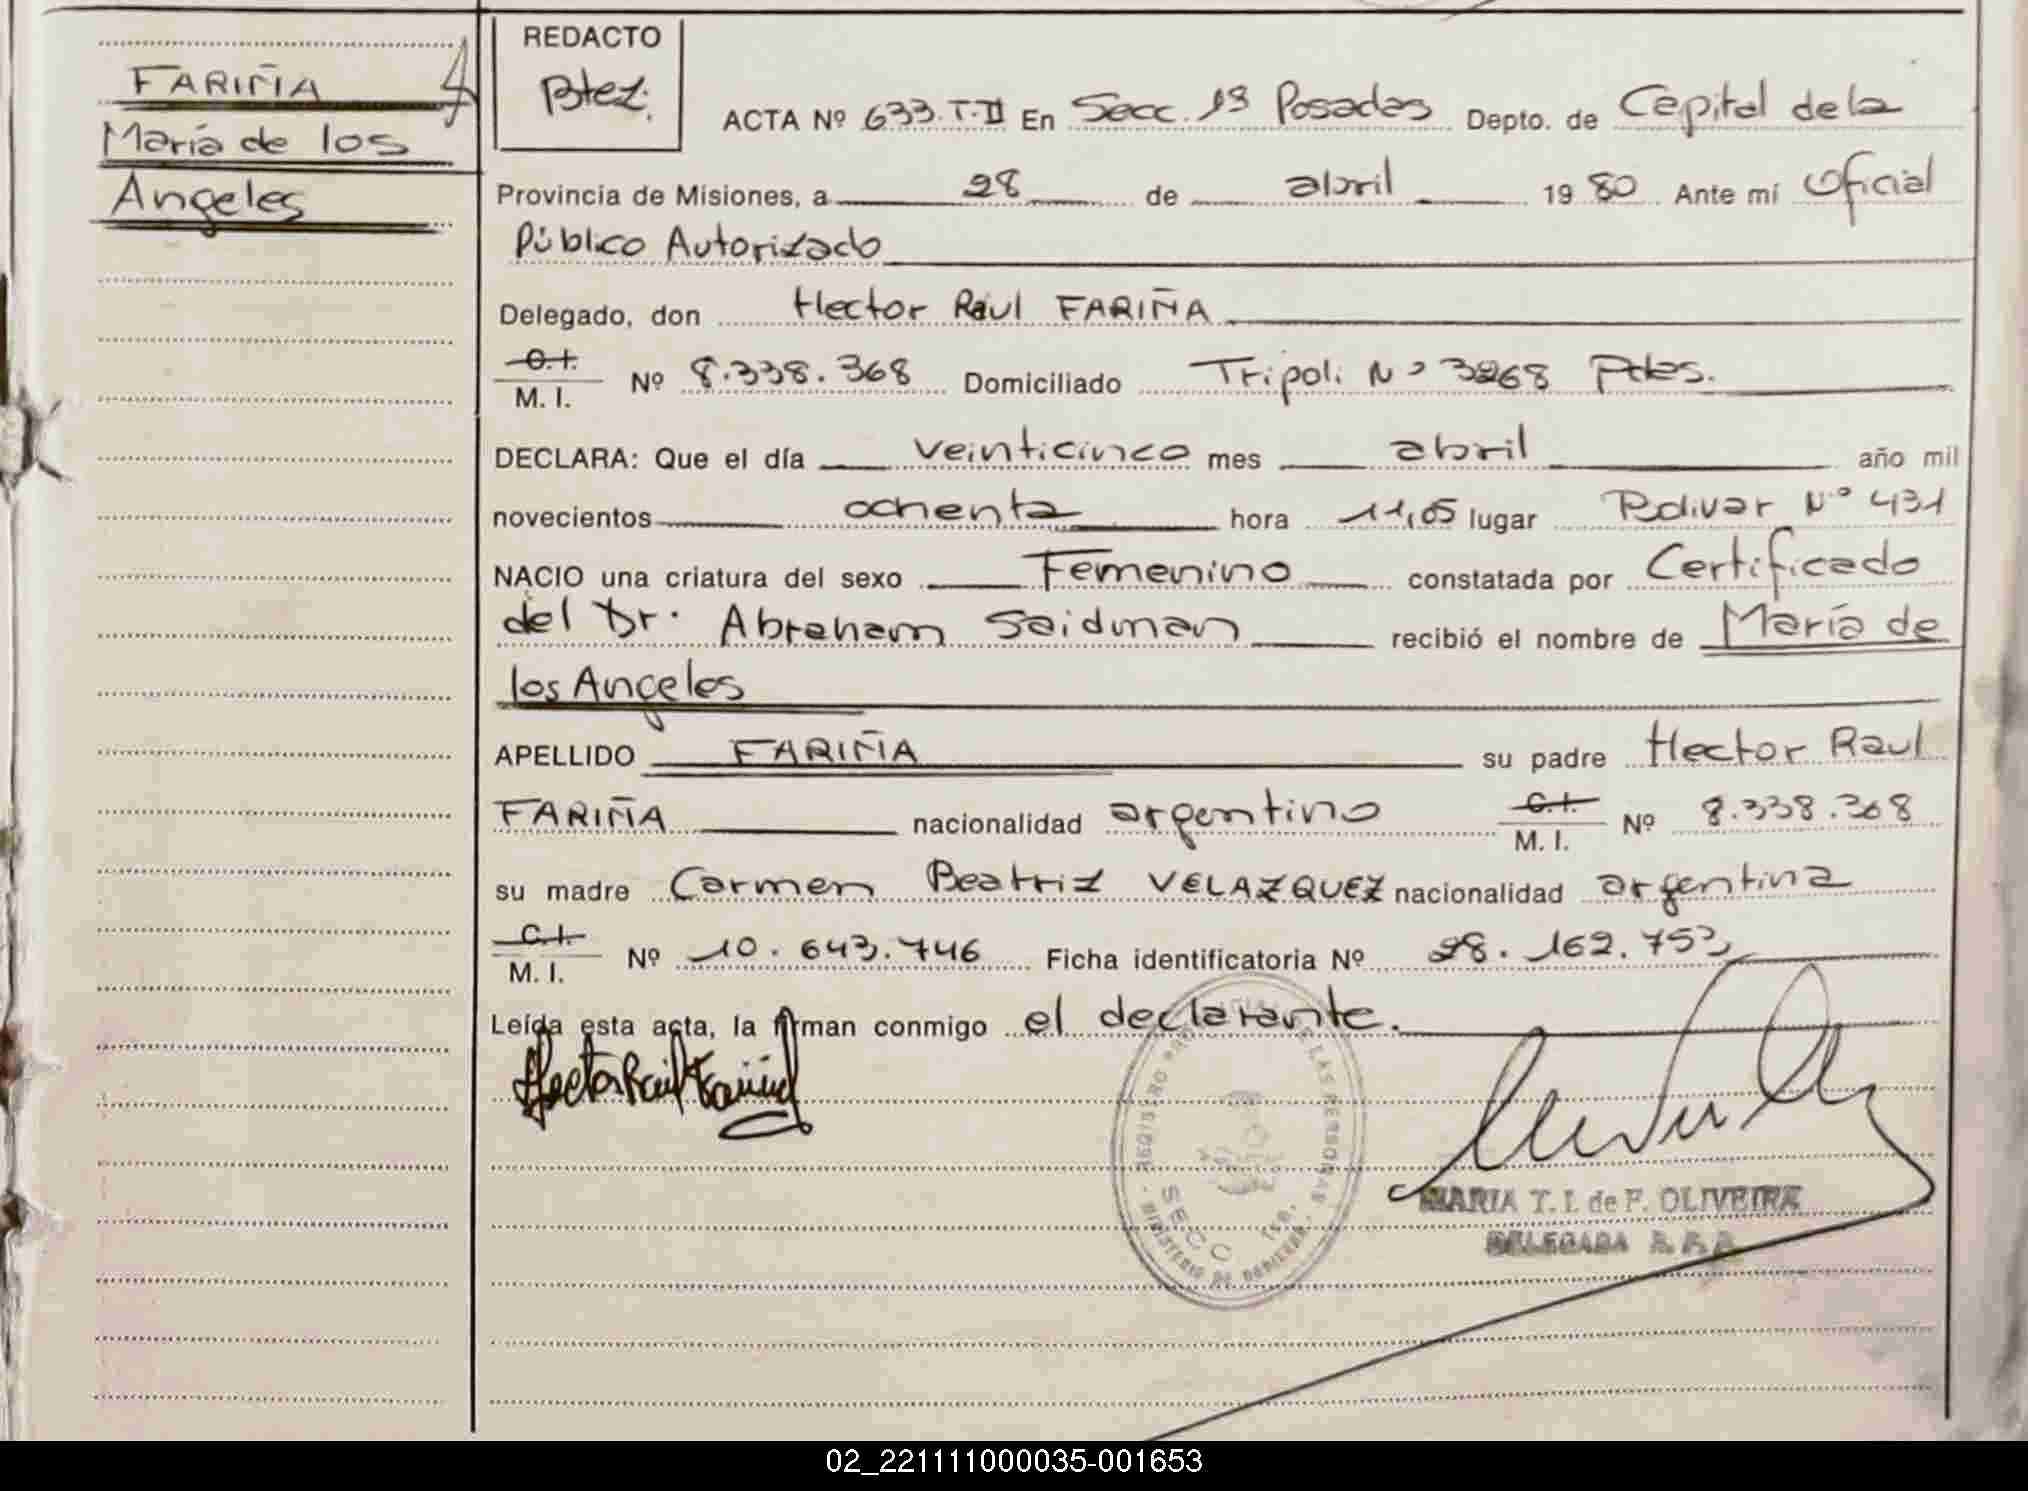 FARIÑA
María de los
Angeles
REDACTO
Btez.
ACTA Nº 633.T.II En Secc. 1ª Posadas Depto. de Capital de la
Provincia de Misiones, a 28 de abril 19 80 Ante mí Oficial
Público Autorizado
Delegado, don Hector Raul FARIÑA
C.I.
M. I. Nº 8.338.368 Domiciliado Tripoli Nº 3268 Pdas.
DECLARA: Que el día veinticinco mes abril año mil
novecientos ochenta hora 11,05 lugar Bolivar Nº 431
NACIO una criatura del sexo Femenino constatada por Certificado
del Dr. Abraham Saidman recibió el nombre de María de
los Angeles
APELLIDO FARIÑA su padre Hector Raul
FARIÑA nacionalidad argentino C.I. M. I. Nº 8.338.368
su madre Carmen Beatriz VELAZQUEZ nacionalidad argentina
C.I.
M. I. Nº 10.643.746 Ficha identificatoria Nº 28.162.753
Leída esta acta, la firman conmigo el declarante.
Hector Raúl Fariña
REGISTRO PROVINCIAL DE LAS PERSONAS
MINISTERIO DE GOBIERNO
MARIA T. I. de F. OLIVEIRA
DELEGADA R. P. P.
02_221111000035-001653